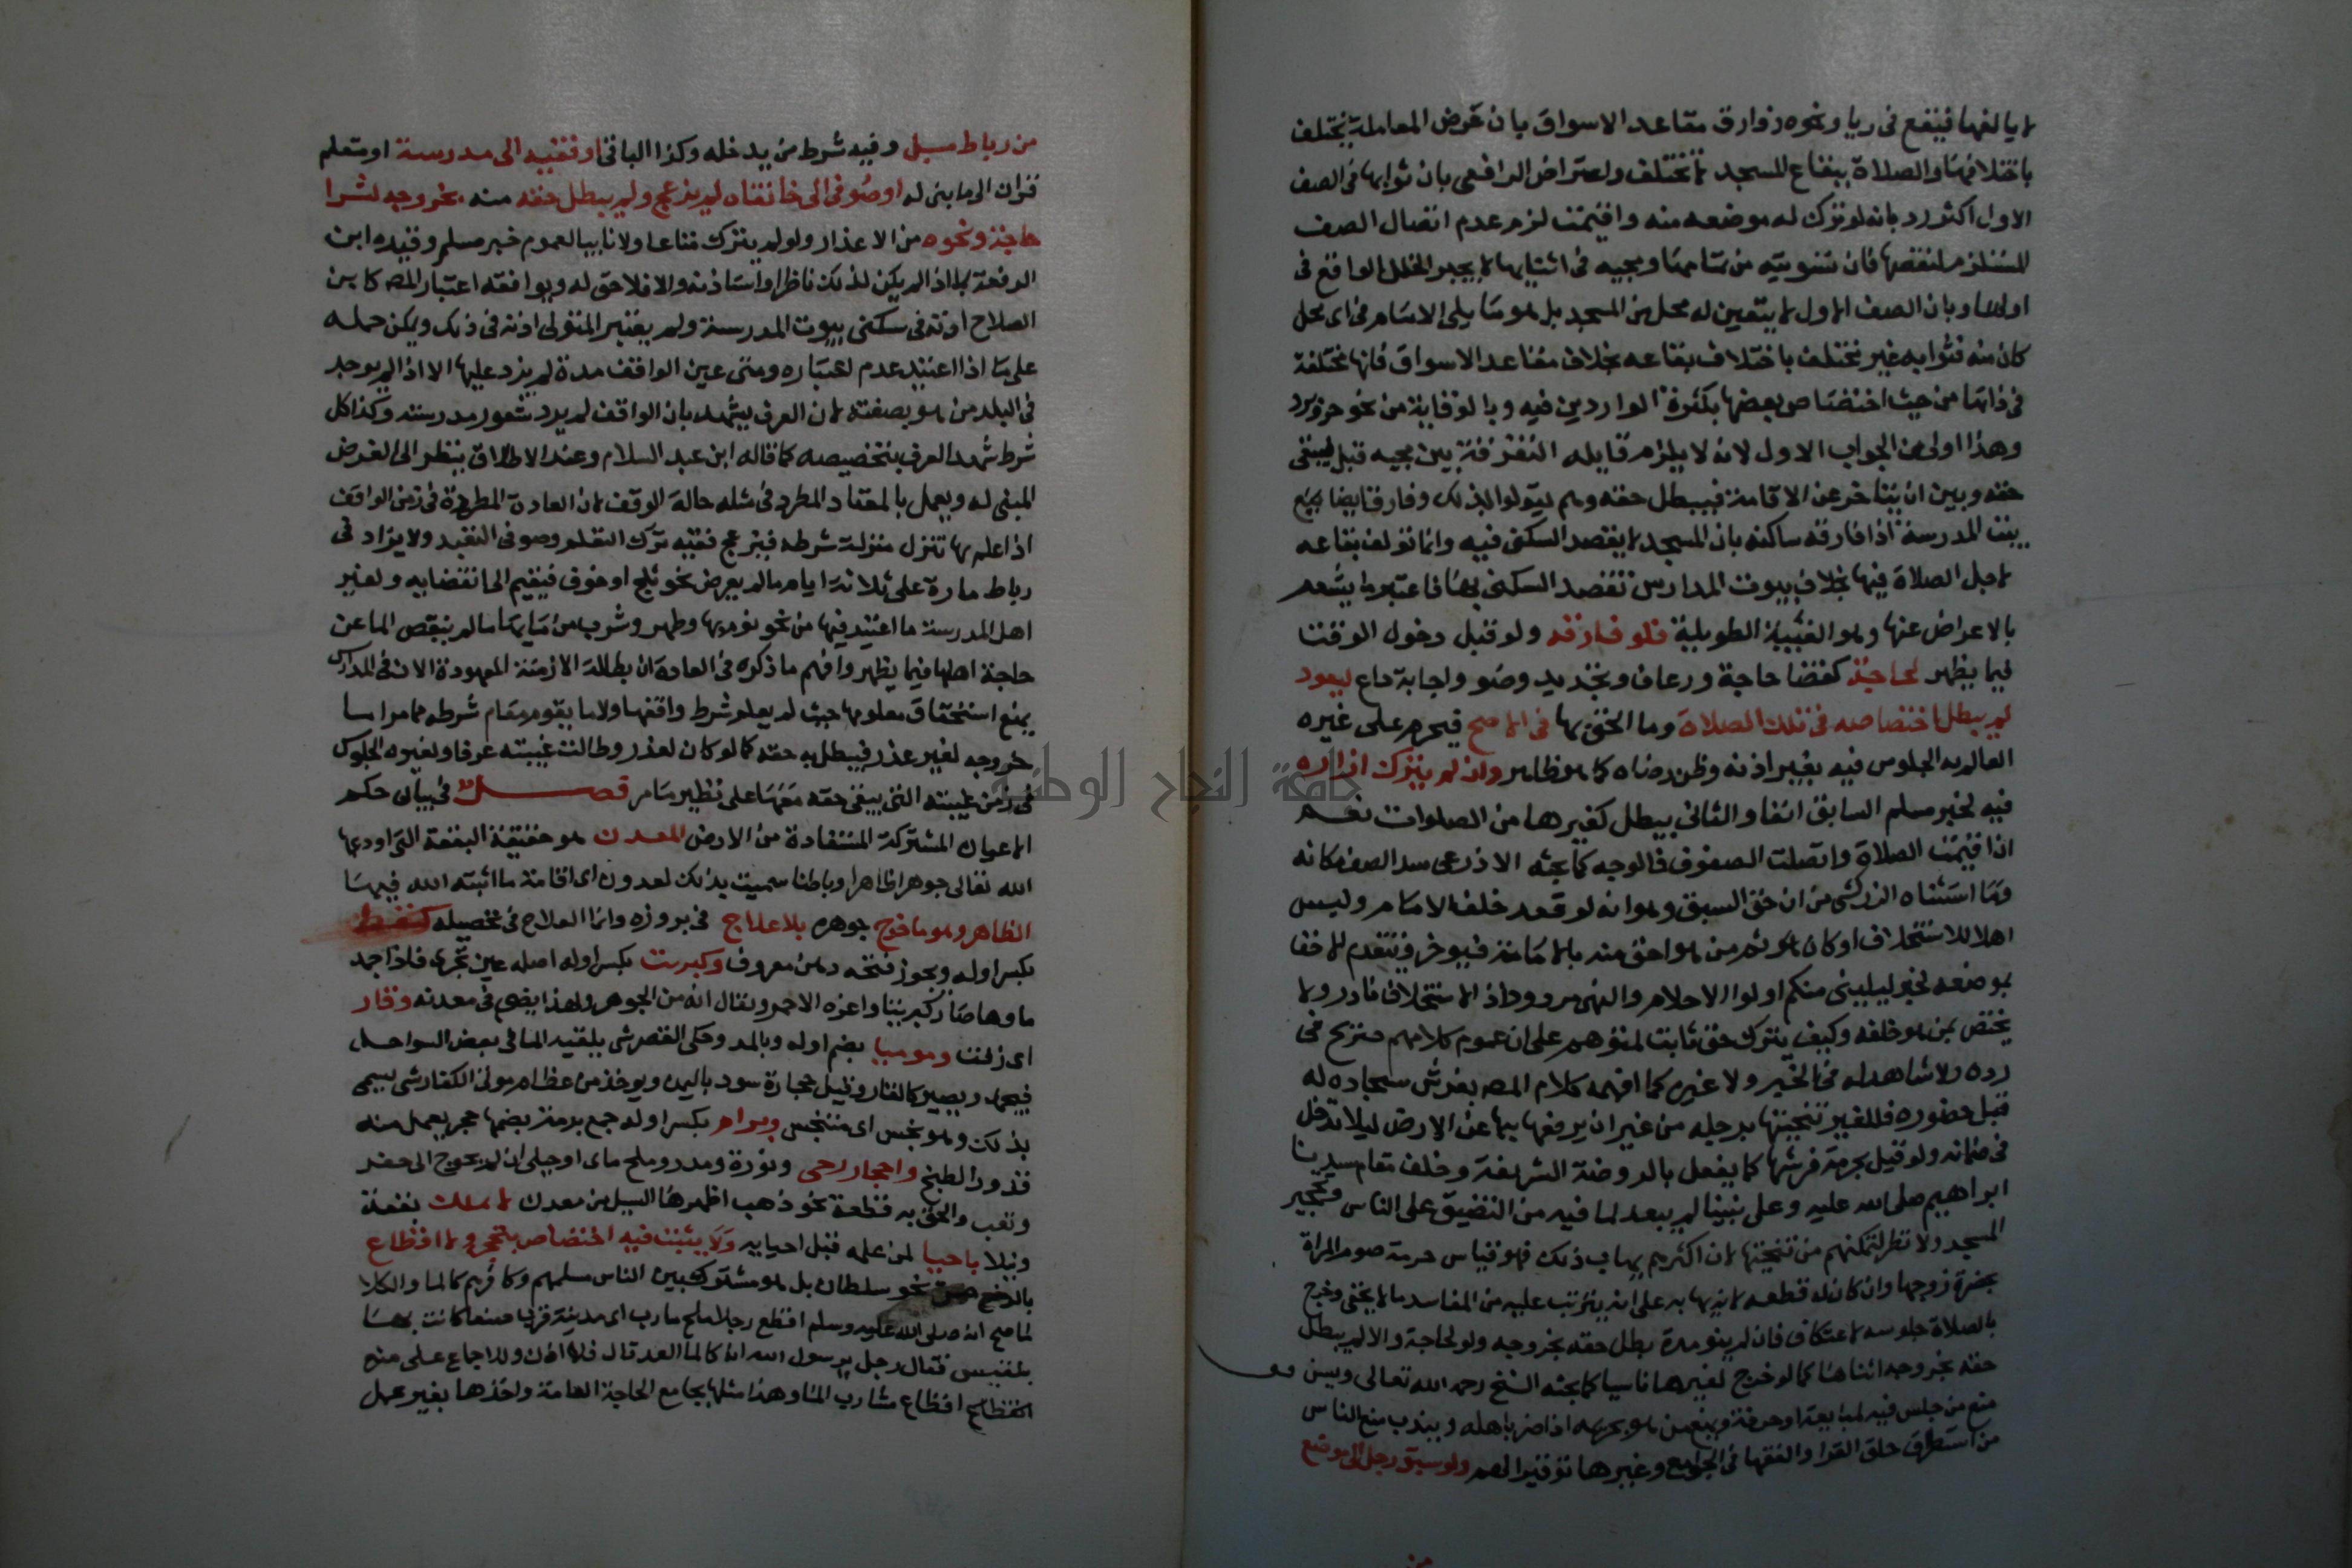 لا يالفها فيقع في ريا ونحوه وفارق مقاعد الاسواق بان غرض المعاملة يختلف
باختلافها والصلاة ببقاع المسجد لا تختلف واعتراض الرافعي بان ثوابها في الصف
الاول اكثر رد بانه لو ترك له موضعه منه واقيمت لزم عدم اتصال الصف
المستلزم لنقصها فان تسويته من تمامها ومجيه في اثنائها لا يجبر الخلل الواقع في
اولها وبان الصف الاول لا يتعين له محل من المسجد بل هو ما يلي الامام في اي محل
كان منه فثوابه غير مختلف باختلاف بقاعه بخلاف مقاعد الاسواق فانها مختلفة
في ذاتها من حيث اختصاص بعضها بكثرة الواردين فيه وبالوقاية من نحو حر وبرد
وهذا اولى من الجواب الاول لانه لا يلزم قايله التفرقة بين مجيه قبل فيبقى
حقه وبين ان يتاخر عن الاقامة فيبطل حقه ولم يقولوا بذلك وفارق ايضا
بيت المدرسة اذا فارقه ساكنه بان المسجد لا يقصد السكنى فيه وانما تولف بقاعه
لاجل الصلاة فيها بخلاف بيوت المدارس تقصد السكنى بها فاعتبر ما يشعر
بالاعراض عنها وهو الغيبة الطويلة فلو فارقه ولو قبل دخول الوقت
فيما يظهر لحاجة كقضا حاجة ورعاف وتجديد وضو واجابة داع ليعود
لم يبطل اختصاصه في تلك الصلاة وما الحق بها في الاصح فيحرم على غيره
العالم به الجلوس فيه بغير اذنه وظن رضاه كما هو ظاهر وان لم يترك ازاره
فيه لخبر مسلم السابق انفا والثاني يبطل كغيرها من الصلوات نعم
اذا اقيمت الصلاة واتصلت الصفوف فالوجه كما بحثه الاذرعي سد الصف مكانه
وما استثناه الزركشي من ان حق السبق وهو انه لو قعد خلف الامام وليس
اهلا للاستخلاف او كان ثم من هو احق منه بالامامة فيوخر ويتقدم الاحق
بموضعه لخبر ليليني منكم اولوا الاحلام والنهى مردود اذ الاستخلاف نادر ولا
يختص بمن هو خلفه وكيف يترك حق ثابت لمتوهم على ان عموم كلامهم صريح في
رده ولا شاهد له في الخبر ولا عبرة كما افهمه كلام المصـ بفرش سجادة له
قبل حضوره فللغير تنحيتها برجله من غير ان يرفعها بها عن الارض ليلا تدخل
في ضمانه ولو قيل بحرمة فرشها كما يفعل بالروضة الشريفة وخلف مقام سيدنا
ابراهيم صلى الله عليه وعلى نبينا لم يبعد لما فيه من التضييق على الناس وتحجير
المسجد ولا نظر لتمكنهم من تنحيتها لان اكثرهم يهاب ذلك فهو قياس حرمة صوم المراة
بحضرة زوجها وان كان له قطعه لانه يهابه على انه يترتب عليه من المفاسد ما لا يخفى وخرج
بالصلاة جلوسه لاعتكاف فان لم ينو مدة بطل حقه بخروجه ولو لحاجة والا لم يبطل
حقه بخروجه اثناها كما لو خرج لغيرها ناسيا كما بحثه الشيخ رحمه الله تعالى ويسن
منع من جلس فيه لمبايعة او حرفة ويمنع من هو بحريمه اذا ضر باهله ويندب منع الناس
من استطراق حلق القرا والفقها في الجوامع وغيرها توقيرا لهم ولو سبق رجل الى موضع
من رباط مسبل وفيه شرط من يدخله وكذا الباقي او فقيه الى مدرسة او متعلم
قران الى ما بني له او صوفي الى خانقاه لم يزعج ولم يبطل حقه منه بخروجه لشرا
حاجة ونحوه من الاعذار ولو لم يترك متاعا ولا نايبا لعموم خبر مسلم وقيده ابن
الرفعة بما اذا لم يكن لذلك ناظر او استاذنه والا فلا حق له ويوافقه اعتبار المصـ كابن
الصلاح اذنه في سكنى بيوت المدرسة ولم يعتبر المتولي اذنه في ذلك ويمكن حمله
على ما اذا اعتيد عدم اعتباره ومتى عين الواقف مدة لم يزد عليها الا اذا لم يوجد
في البلد من هو بصفته لان العرف يشهد بان الواقف لم يرد شغور مدرسته وكذا كل
شرط شهد العرف بتخصيصه كما قاله ابن عبد السلام وعند الاطلاق ينظر الى الغرض
المبنى له ويعمل بالمعتاد المطرد في مثله حالة الوقف لان العادة المطردة في زمن الواقف
اذا علم بها تنزل منزلة شرطه فيزعج فقيه ترك التعلم وصوفي التعبد ولا يزاد في
رباط مارة على ثلاثة ايام ما لم يعرض نحو ثلج او خوف فيقيم الى انقضايه ولغير
اهل المدرسة ما اعتيد فيها من نحو نوم بها وطهر وشرب من مايها ما لم ينقص الما عن
حاجة اهلها فيما يظهر وافهم ما ذكره في العادة ان بطالة الازمنة المعهودة الان في المدارس
يمنع استحقاق معلومها حيث لم يعلم شرط واقفها ولا ما يقوم مقام شرطه مما مر اما
خروجه لغير عذر فيبطل به حقه كما لو كان لعذر وطالت غيبته عرفا ولغيره الجلوس
في زمن غيبته التي يبقى حقه معها على نظير ما مر فصـــل في بيان حكم
الاعيان المشتركة المستفادة من الارض المعدن هو حقيقة البقعة التي اودعها
الله تعالى جوهرا ظاهرا وباطنا سميت بذلك لعدون اي اقامة ما اثبته الله فيها
الظاهر وهو ما خرج جوهره بلا علاج في بروزه وانما العلاج في تحصيله كنفط
بكسر اوله ويجوز فتحه دهن معروف وكبريت بكسر اوله اصله عين تجري فاذا جمد
ماوها صار كبريتا واعزه الاحمر ويقال انه من الجوهر ولهذا يضي في معدنه وقار
اي زفت وموميا بضم اوله وبالمد وحكي القصر شي يلقيه الما في بعض السواحل
فيجمد ويصير كالقار وقيل حجارة سود باليمن ويوخذ من عظام موتى الكفار شي يسمى
بذلك وهو نجس اي متنجس وبرام بكسر اوله جمع برمة بضمها حجر يعمل منه
قدور الطبخ واحجار رحى ونورة ومدر وملح ماي او جبلي ان لم يحوج الى حفر
وتعب والحق به قطعة نحو ذهب اظهرها السيل من معدن لا يملك بقعة
ونيلا باحيا لمن علمه قبل احيايه ولا يثبت فيه اختصاص بتحجر ولا اقطاع
بالرفع نحو سلطان بل هو مشترك بين الناس مسلمهم وكافرهم كالما والكلا
لما صح انه صلى الله عليه وسلم اقطع رجلا ملح مارب اي مدينة قرب صنعا كانت بها
بلقيس فقال رجل يرسول الله انه كالما العد قال فلا اذن وللاجماع على منع
اقطاع مشارب الما وهذا مثلها بجامع الحاجة العامة واخذها بغير عمل
جامعة النجاح الوطنية